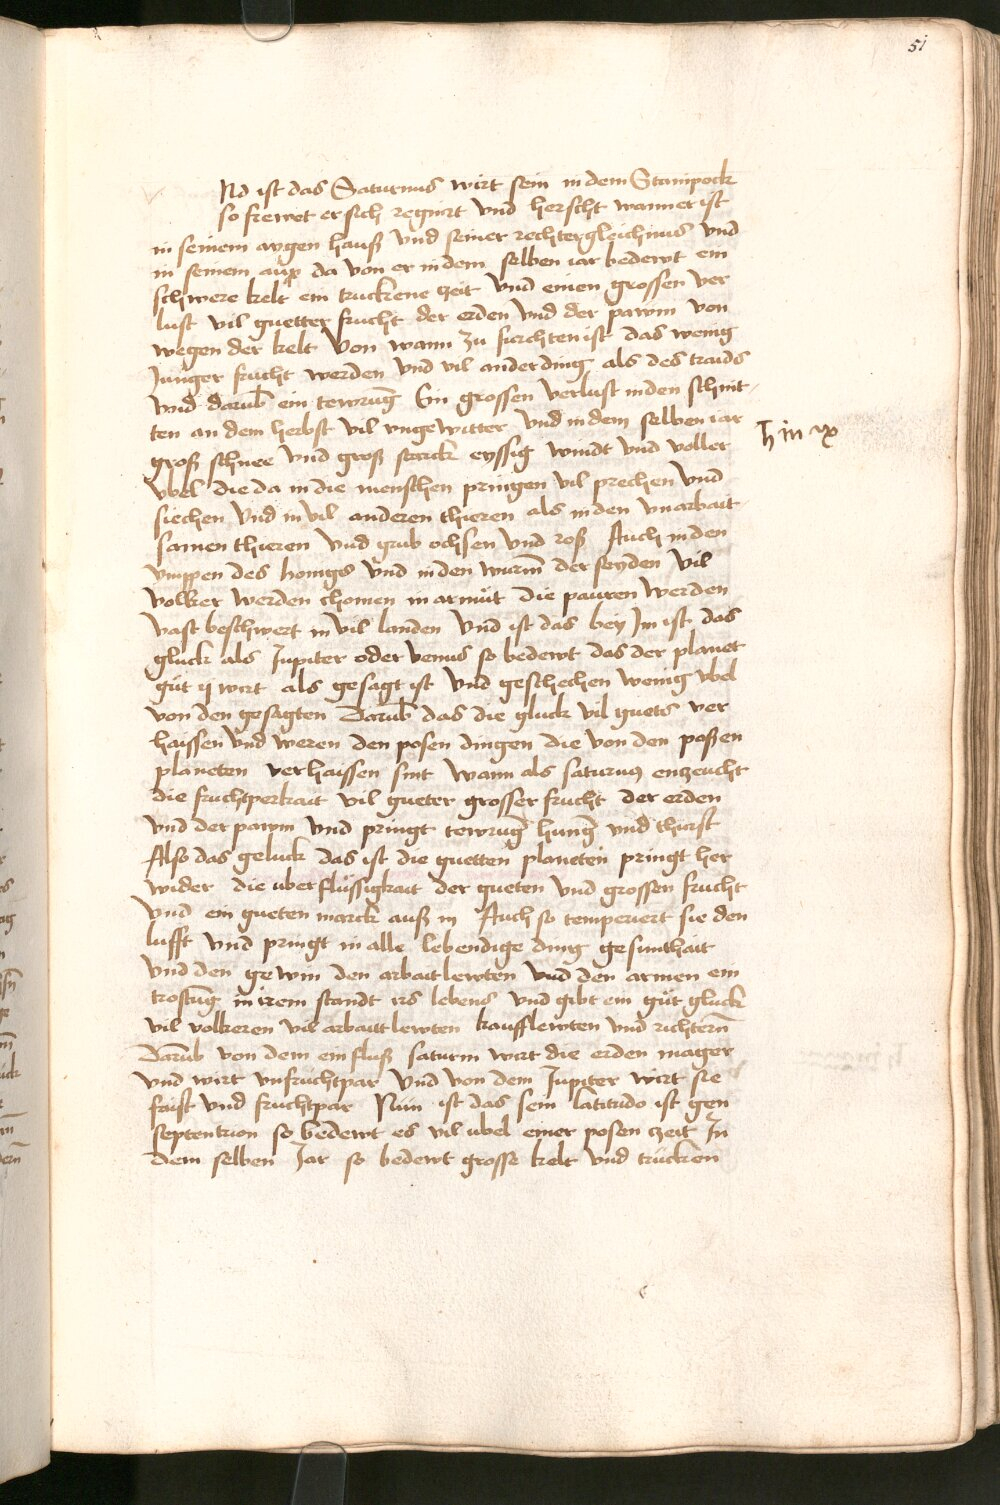 51
Nd ist das Saturnus wirt sein in dem Stainpock
so frewet er sich regnirt vnd herscht wann er ist
in seinem aygen hauß vnd seiner rechter gleichnus vnd
in seinem aux da von er in dem selben iar bedewt ein
schwere kelt ein truckene zeit vnd einen grossen ver
lust vil guetter frucht der erden vnd der pawm von
wegen der kelt von wann zu furchten ist das wenig
Junger frucht werden vnd vil ander ding als des traids
vnd darub ein tewrug Ein grossen verlust in den schnit
ten an dem herbst vil vngewitter vnd in dem selben iar
groß schnee vnd groß starck eyssig windt vnd voller
vbel die da in die menschen pringen vil prechen vnd
siechen vnd in vil anderen thieren als in den vnarbait
samen thieren vnd grub ochsen vnd roß Auch in den
vmppen des honigs vnd in den wurm der seyden vil
volker werden chomen in armut die pauren werden
vast beschwert in vil landen vnd ist das bey Im ist das
gluck als Jupiter oder venus so bedewt das der planet
gut wirt als gesagt ist vnd geschechen wenig vbel
von den gesagten Darub das die gluck vil guets ver
haissen vnd weren den posen dingen die von den poßen
planeten verhaissen sint wann als saturnus enzeucht
die fruchtperkait vil gueter grosser frucht der erden
vnd der pawm vnd pringt tewrug hung vnd thurst
Also das geluck das ist die guetten planeten pringt her
wider die uberflussigkait der gueten vnd grossen frucht
vnd ein gueten marck auß in Auch so temperiert sie den
lufft vnd pringt in alle lebendige ding gesunthait
vnd den gewin den arbaitlewten vnd den armen ein
trostug in irem standt irs lebens vnd gibt ein gut gluck
vil volkeren vil arbaittlewten kaufflewten vnd richtern
Darub von dem einfluß saturni wirt die erden mager
vnd wirt vnfruchtpar vnd von dem Jupiter wirt sie
faist vnd fruchtpar Nun ist das sein latitudo ist gen
septentrion so bedewt es vil ubel einer posen zeit In
dem selben Jar so bedewt grosse kelt vnd trucken
♄ in ♑